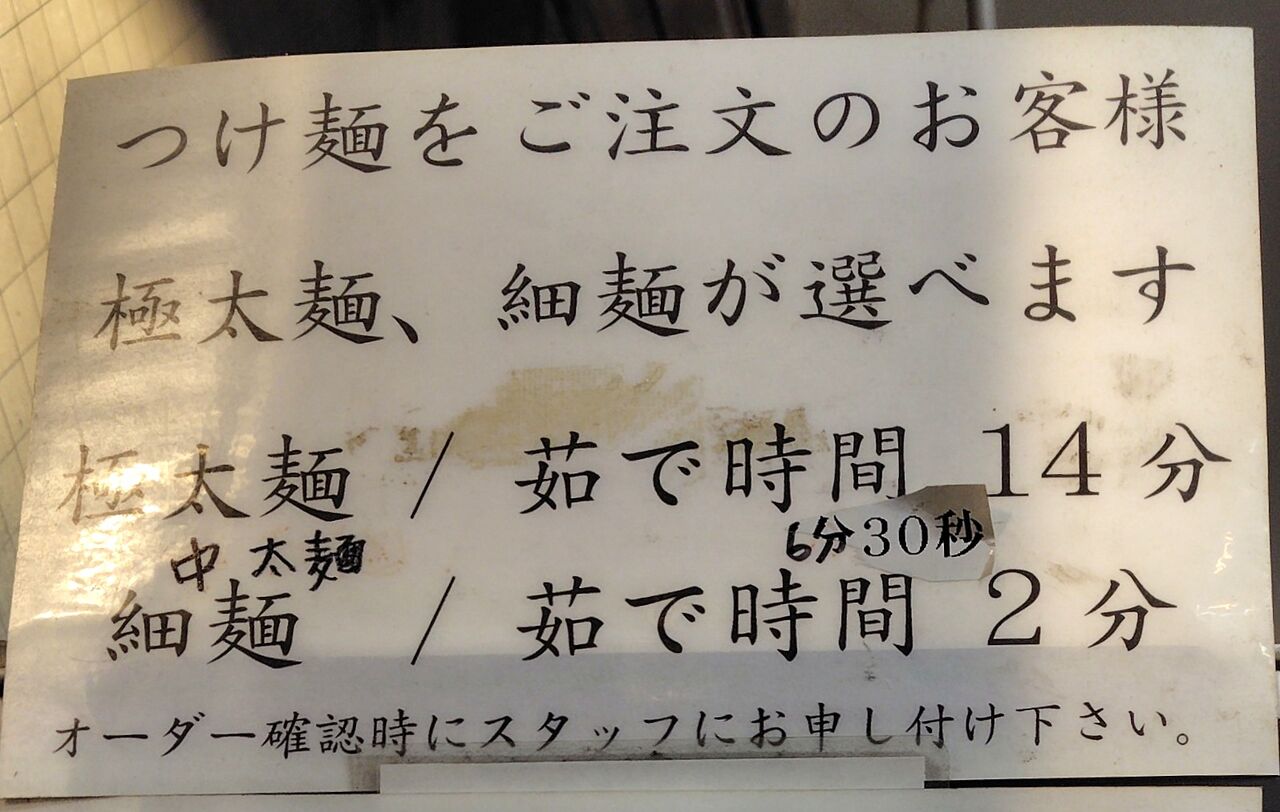 つけ麺をご注文のお客様
極太麺、細麺が選べます
極太麺 / 茹で時間 14分
中太麺 6分30秒
細麺 / 茹で時間 2分
オーダー確認時にスタッフにお申し付け下さい。